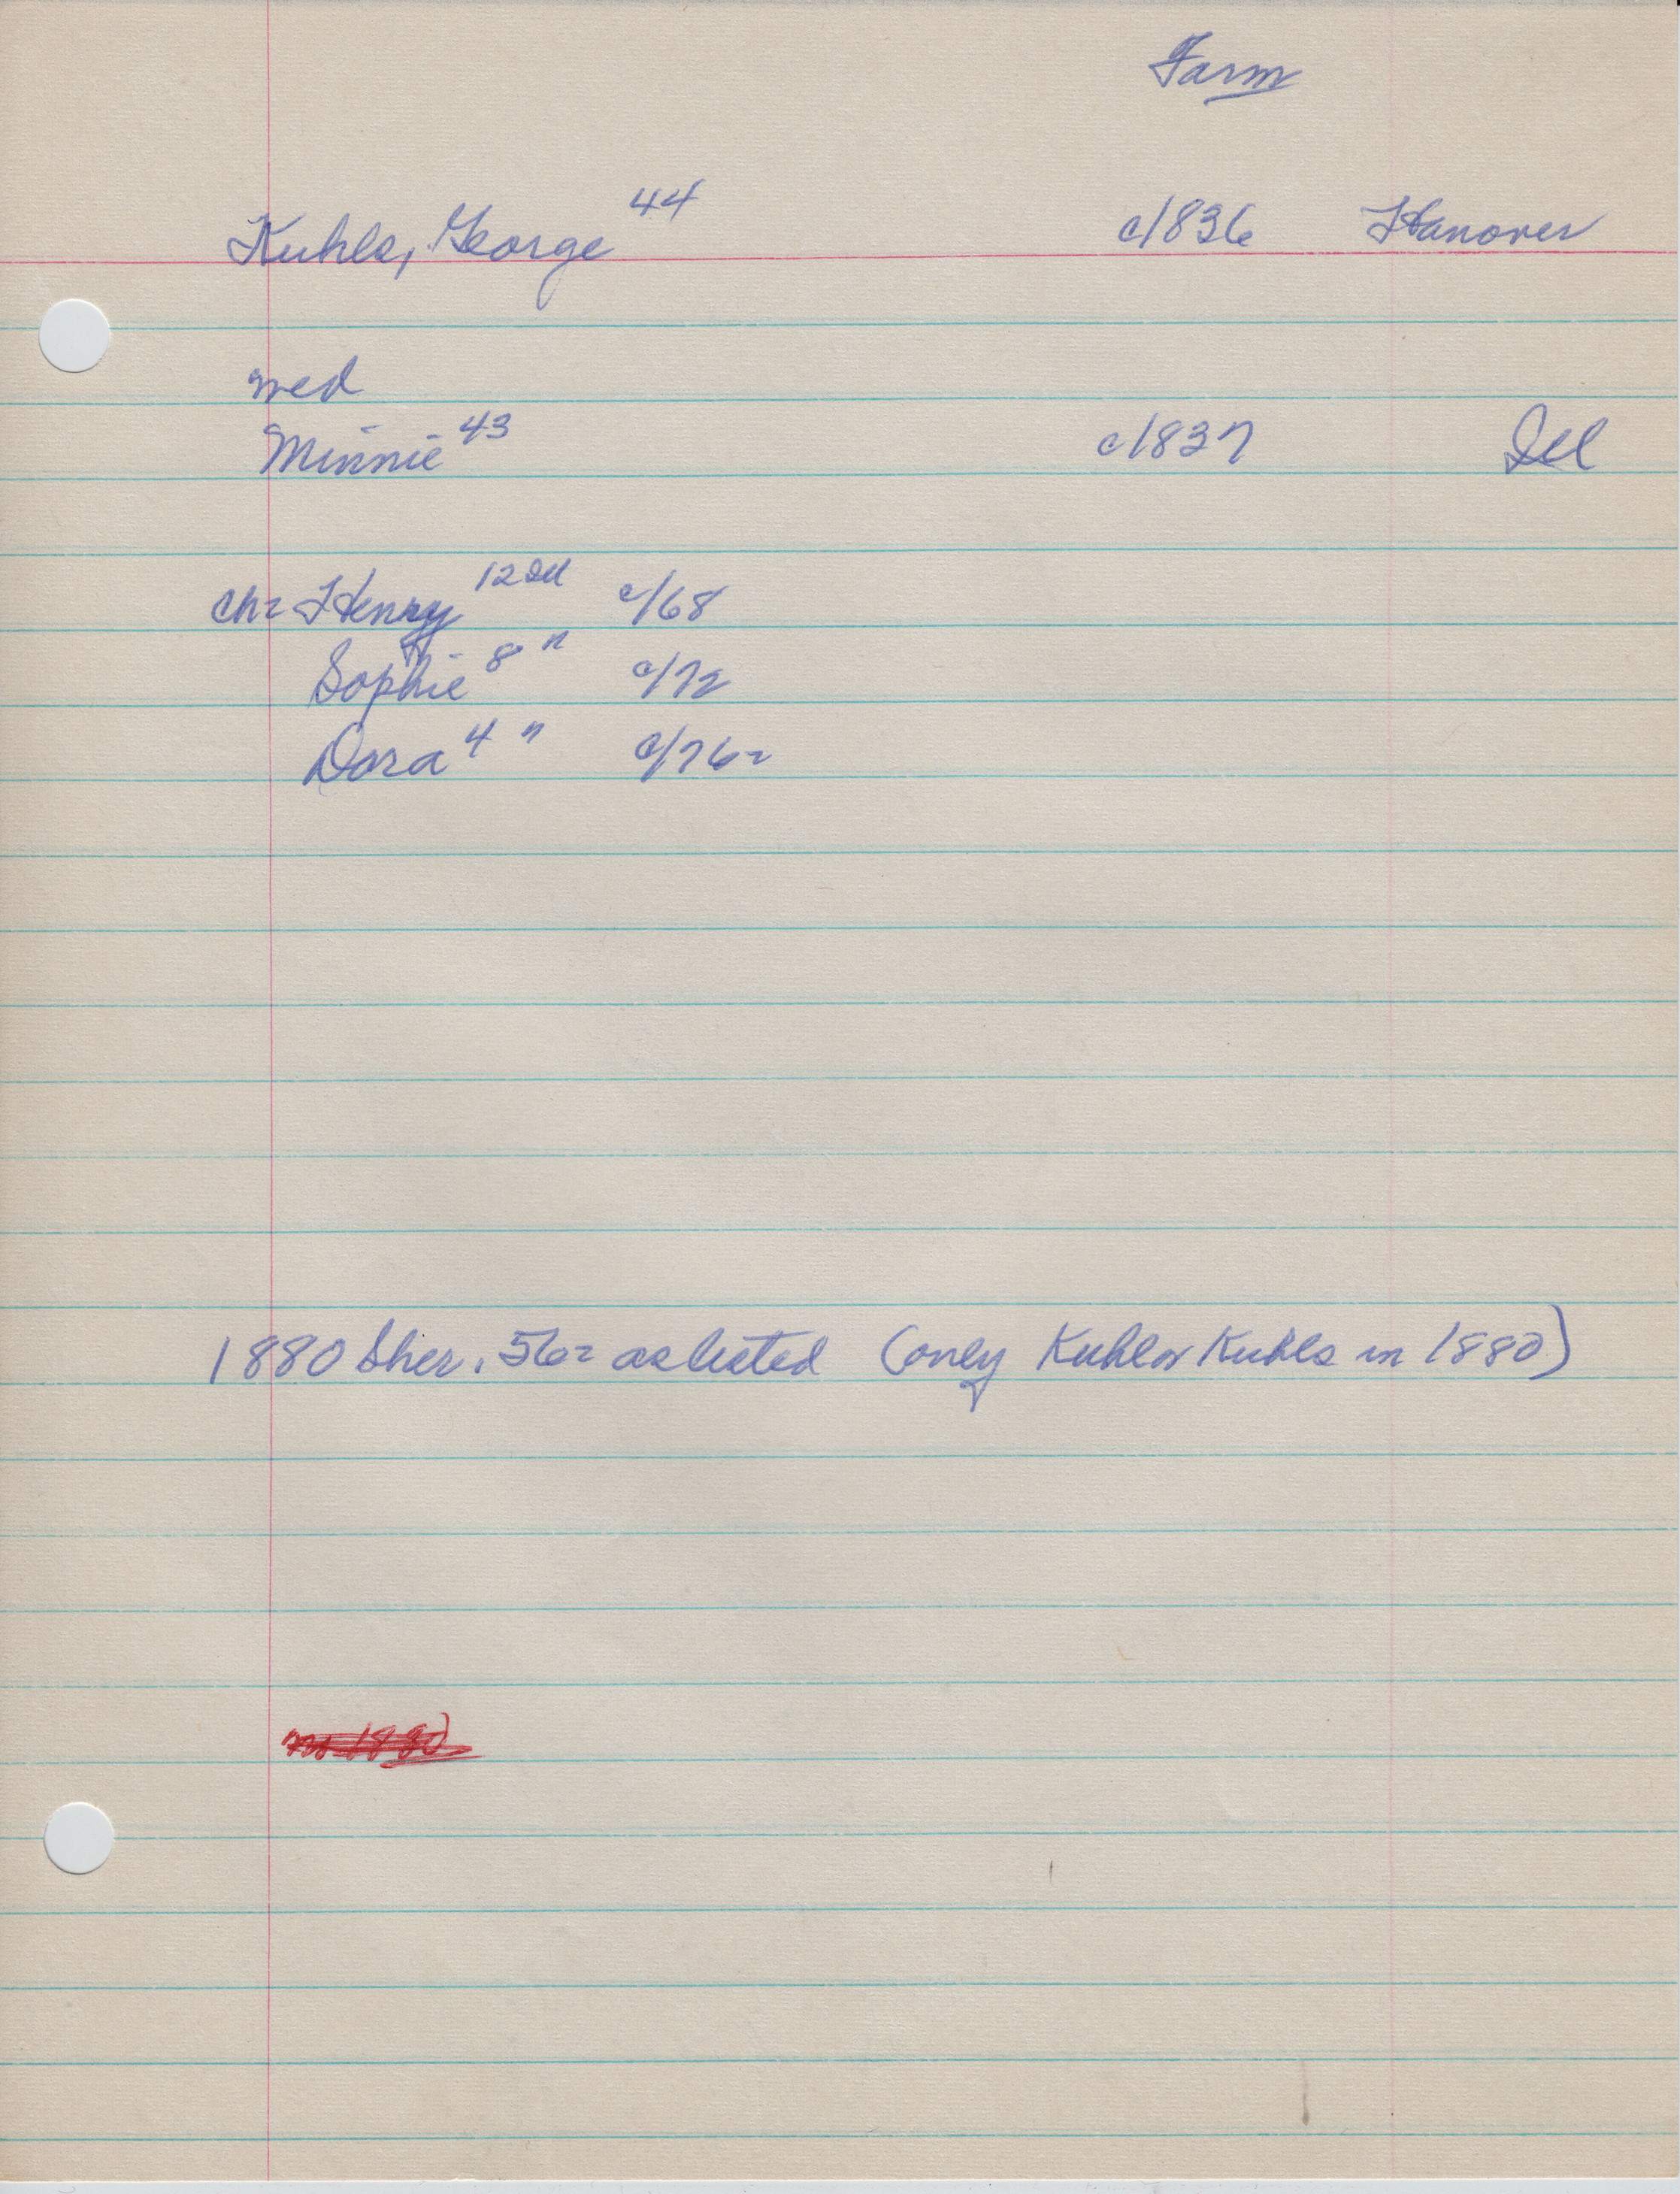 Farm
Kuhls, George 44 c/836 Hanover
wed
Minnie 43 c1837 Ill
ch= Henry 12 Ill c/68
Sophie 8 " c/72
Dora 4 " c/76=
1880 Sher. 56= as listed (only Kuhl or Kuhls in 1880)
1880